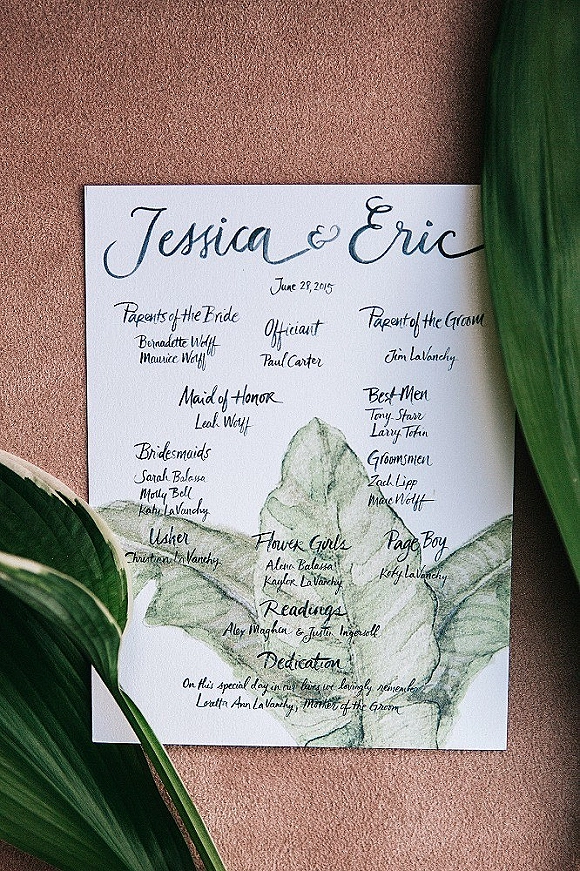 Jessica & Eric
June 28, 2015
Parents of the Bride
Bernadette Wolff
Maurice Wolff
Officiant
Paul Carter
Parent of the Groom
Jim LaVanchy
Maid of Honor
Leah Wolff
Best Men
Tony Starr
Larry Tobin
Bridesmaids
Sarah Balassa
Molly Bell
Katy LaVanchy
Groomsmen
Zach Lipp
Marc Wolff
Usher
Christian LaVanchy
Flower Girls
Alena Balassa
Kaylor LaVanchy
Page Boy
LaVanchy
Readings
Alex & Justin Ingersoll
Dedication
On this special day in our lives we lovingly remember
Loretta Ann LaVanchy, Mother of the Groom